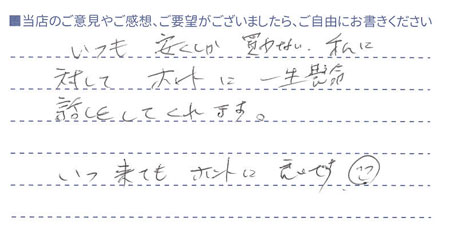 ■当店のご意見やご感想、ご要望がございましたら、ご自由にお書きください
いつも 安くしか 買わない 私に
対して ホントに 一生懸命
話しをしてくれます。
いつ 来ても ホントに です